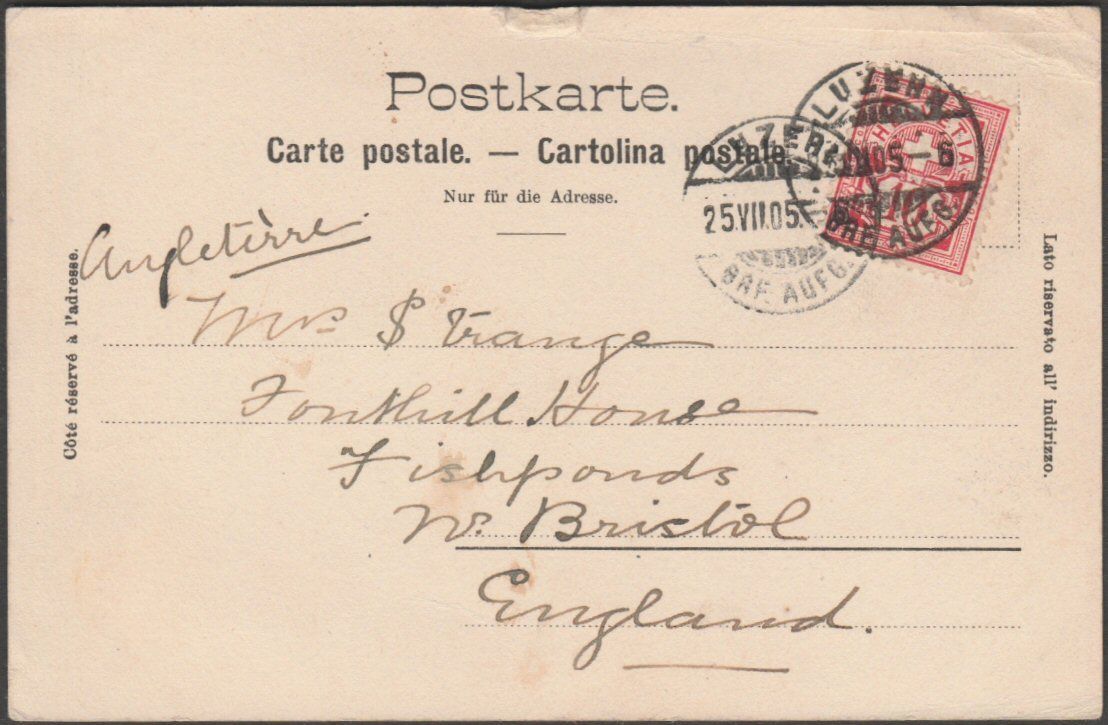 Postkarte.
Carte postale. — Cartolina postale.
Nur für die Adresse.
LUZERN
25.VII.05.
BRF. AUFG.
LUZERN
05–6
BRF. AUFG.
HELVETIA
Angletèrre
Mrs Strange
Fonthill House
Fishponds
Nr. Bristol
England.
Côté réservé à l'adresse.
Lato riservato all' indirizzo.